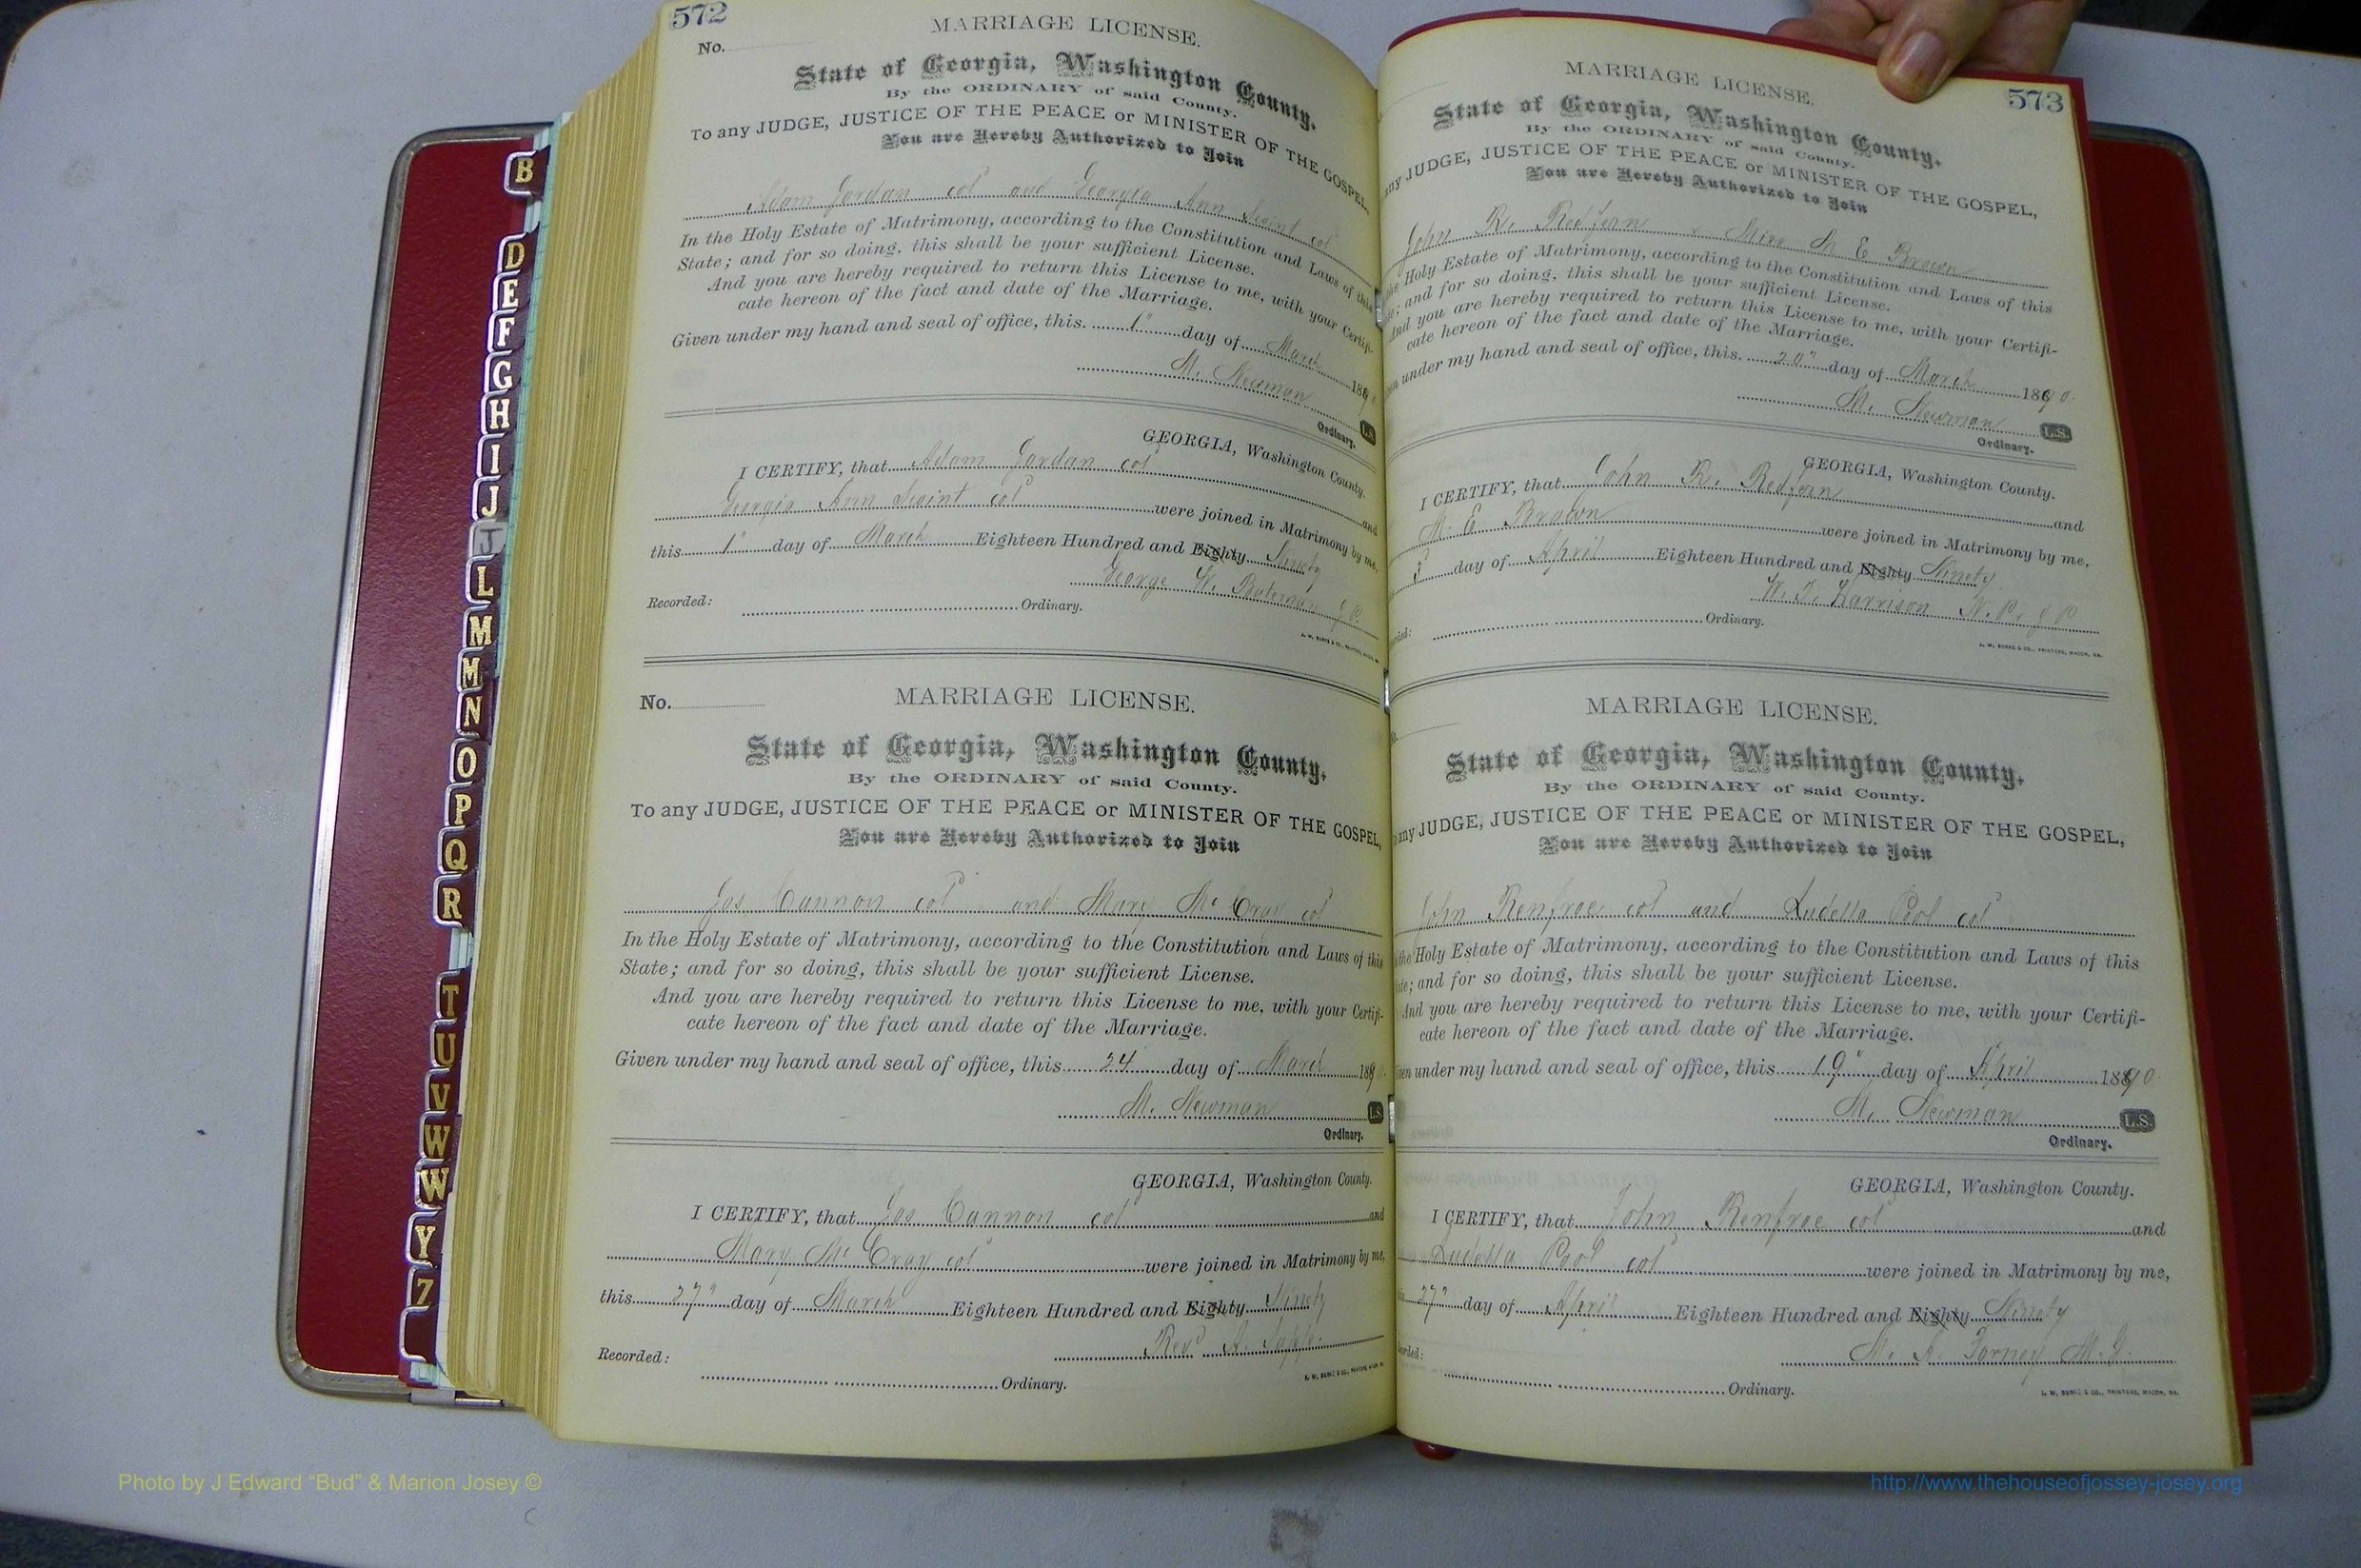 572
MARRIAGE LICENSE.
No.
State of Georgia, Washington County.
By the ORDINARY of said County.
To any JUDGE, JUSTICE OF THE PEACE or MINISTER OF THE GOSPEL,
You are Hereby Authorized to Join
Adam Jordan col and Georgia Ann col
In the Holy Estate of Matrimony, according to the Constitution and Laws of this
State; and for so doing, this shall be your sufficient License.
And you are hereby required to return this License to me, with your Certifi-
cate hereon of the fact and date of the Marriage.
Given under my hand and seal of office, this 1" day of March 1890
M. Newman L.S.
Ordinary.
GEORGIA, Washington County.
I CERTIFY, that Adam Jordan col and
Georgia Ann col were joined in Matrimony by me,
this 1" day of March Eighteen Hundred and Eighty Ninety
George W. Bateman J.P.
Recorded: Ordinary.
J. W. BURKE & CO., PRINTERS, MACON, GA.
No. MARRIAGE LICENSE.
State of Georgia, Washington County.
By the ORDINARY of said County.
To any JUDGE, JUSTICE OF THE PEACE or MINISTER OF THE GOSPEL,
You are Hereby Authorized to Join
Jos Cannon col and Mary McCray col
In the Holy Estate of Matrimony, according to the Constitution and Laws of this
State; and for so doing, this shall be your sufficient License.
And you are hereby required to return this License to me, with your Certifi-
cate hereon of the fact and date of the Marriage.
Given under my hand and seal of office, this 24 day of March 1890
M. Newman L.S.
Ordinary.
GEORGIA, Washington County.
I CERTIFY, that Jos Cannon col and
Mary McCray col were joined in Matrimony by me,
this 27" day of March Eighteen Hundred and Eighty Ninety
Rev'd
Recorded: Ordinary.
J. W. BURKE & CO., PRINTERS, MACON, GA.
573
MARRIAGE LICENSE.
State of Georgia, Washington County.
By the ORDINARY of said County.
any JUDGE, JUSTICE OF THE PEACE or MINISTER OF THE GOSPEL,
You are Hereby Authorized to Join
John R. Redfern & Miss M E Brown
the Holy Estate of Matrimony, according to the Constitution and Laws of this
; and for so doing, this shall be your sufficient License.
And you are hereby required to return this License to me, with your Certifi-
cate hereon of the fact and date of the Marriage.
under my hand and seal of office, this 20" day of March 1890.
M. Newman L.S.
Ordinary.
GEORGIA, Washington County.
I CERTIFY, that John R. Redfern and
M. E. Brown were joined in Matrimony by me,
3 day of April Eighteen Hundred and Eighty Ninety
W. T. Harrison N. P. J P
Ordinary.
J. W. BURKE & CO., PRINTERS, MACON, GA.
MARRIAGE LICENSE.
State of Georgia, Washington County.
By the ORDINARY of said County.
any JUDGE, JUSTICE OF THE PEACE or MINISTER OF THE GOSPEL,
You are Hereby Authorized to Join
John Renfroe col and Ludella Pool col
the Holy Estate of Matrimony, according to the Constitution and Laws of this
; and for so doing, this shall be your sufficient License.
And you are hereby required to return this License to me, with your Certifi-
cate hereon of the fact and date of the Marriage.
under my hand and seal of office, this 19" day of April 1890.
M. Newman L.S.
Ordinary.
GEORGIA, Washington County.
I CERTIFY, that John Renfroe col and
Ludella Pool col were joined in Matrimony by me,
27" day of April Eighteen Hundred and Eighty Ninety
Forney M.G.
Ordinary.
J. W. BURKE & CO., PRINTERS, MACON, GA.
B
D
E
F
G
H
I
J
J
L
M
M
N
O
P
Q
R
T
U
V
W
W
Y
Z
Photo by J Edward “Bud” & Marion Josey ©
http://www.thehouseofjossey-josey.org